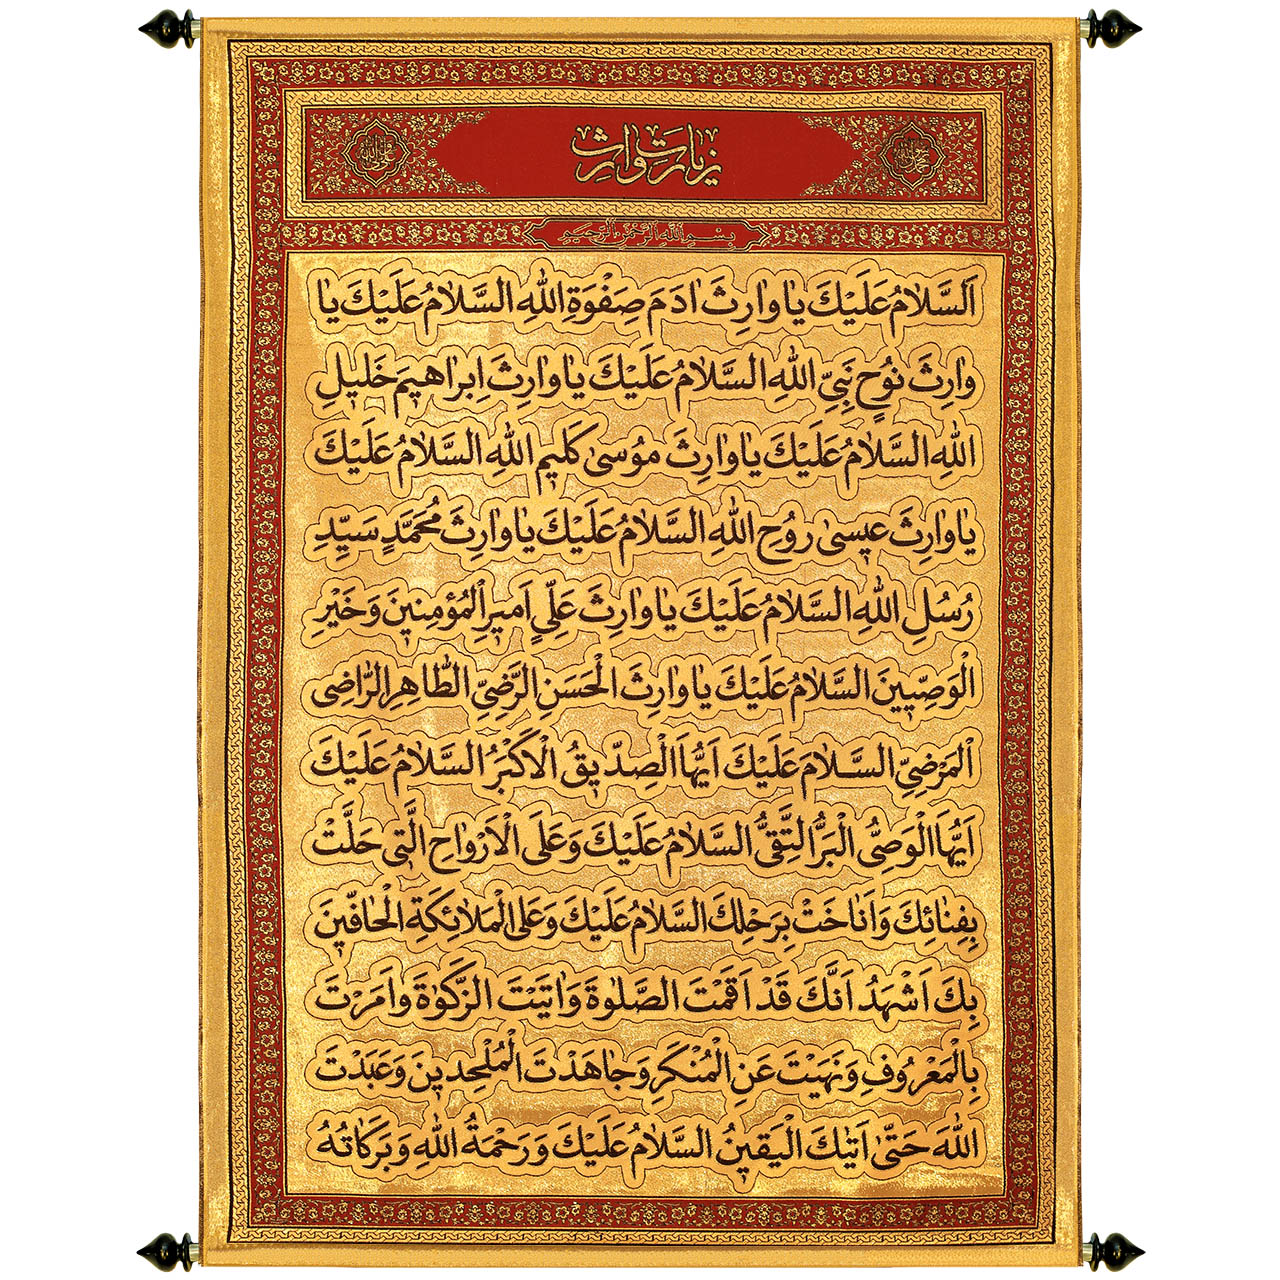 زیارت وارث
بِسْمِ اللهِ الرَّحْمنِ الرَّحیمِ
اَلسَّلامُ عَلَیْكَ یا وارِثَ ادَمَ صِفْوَةِ اللهِ السَّلامُ عَلَیْكَ یا
وارِثَ نُوحٍ نَبِیِّ اللهِ السَّلامُ عَلَیْكَ یا وارِثَ اِبراهیمَ خَلیلِ
اللهِ السَّلامُ عَلَیْكَ یا وارِثَ مُوسی كَلیمِ اللهِ السَّلامُ عَلَیْكَ
یا وارِثَ عیسی رُوحِ اللهِ السَّلامُ عَلَیْكَ یا وارِثَ مُحَمَّدٍ سَیِّدِ
رُسُلِ اللهِ السَّلامُ عَلَیْكَ یا وارِثَ عَلِیٍّ اَمیرِ الْمُؤمِنینَ وَ خَیْرِ
الْوَصِیّینَ السَّلامُ عَلَیْكَ یا وارِثَ الْحَسَنِ الرَّضِیِّ الطّاهِرِ الرّاضِی
الْمَرْضِیِّ السَّلامُ عَلَیْكَ اَیُّهَا الْصِدّیقُ الْاَكْبَرُ السَّلامُ عَلَیْكَ
اَیُّهَا الْوَصِیُّ الْبَرُّ التَّقِیُّ السَّلامُ عَلَیْكَ وَ عَلَی الْاَرْواحِ الَّتی حَلَّتْ
بِفِنائِكَ وَ اَناخَتْ بِرَحْلِكَ السَّلامُ عَلَیْكَ وَ عَلَی الْمَلائِكَةِ الْحافّینَ
بِكَ اَشْهَدُ اَنَّكَ قَدْ اَقَمْتَ الصَّلوةَ وَ اتَیْتَ الزَّكوةَ وَ اَمَرْتَ
بِالْمَعْرُوفِ وَ نَهَیْتَ عَنِ الْمُنْكَرِ وَ جاهَدْتَ الْمُلْحِدینَ وَ عَبَدْتَ
اللهَ حَتّی اَتیكَ الْیَقینُ السَّلامُ عَلَیْكَ وَ رَحْمَةُ اللهِ وَ بَرَكاتُهُ